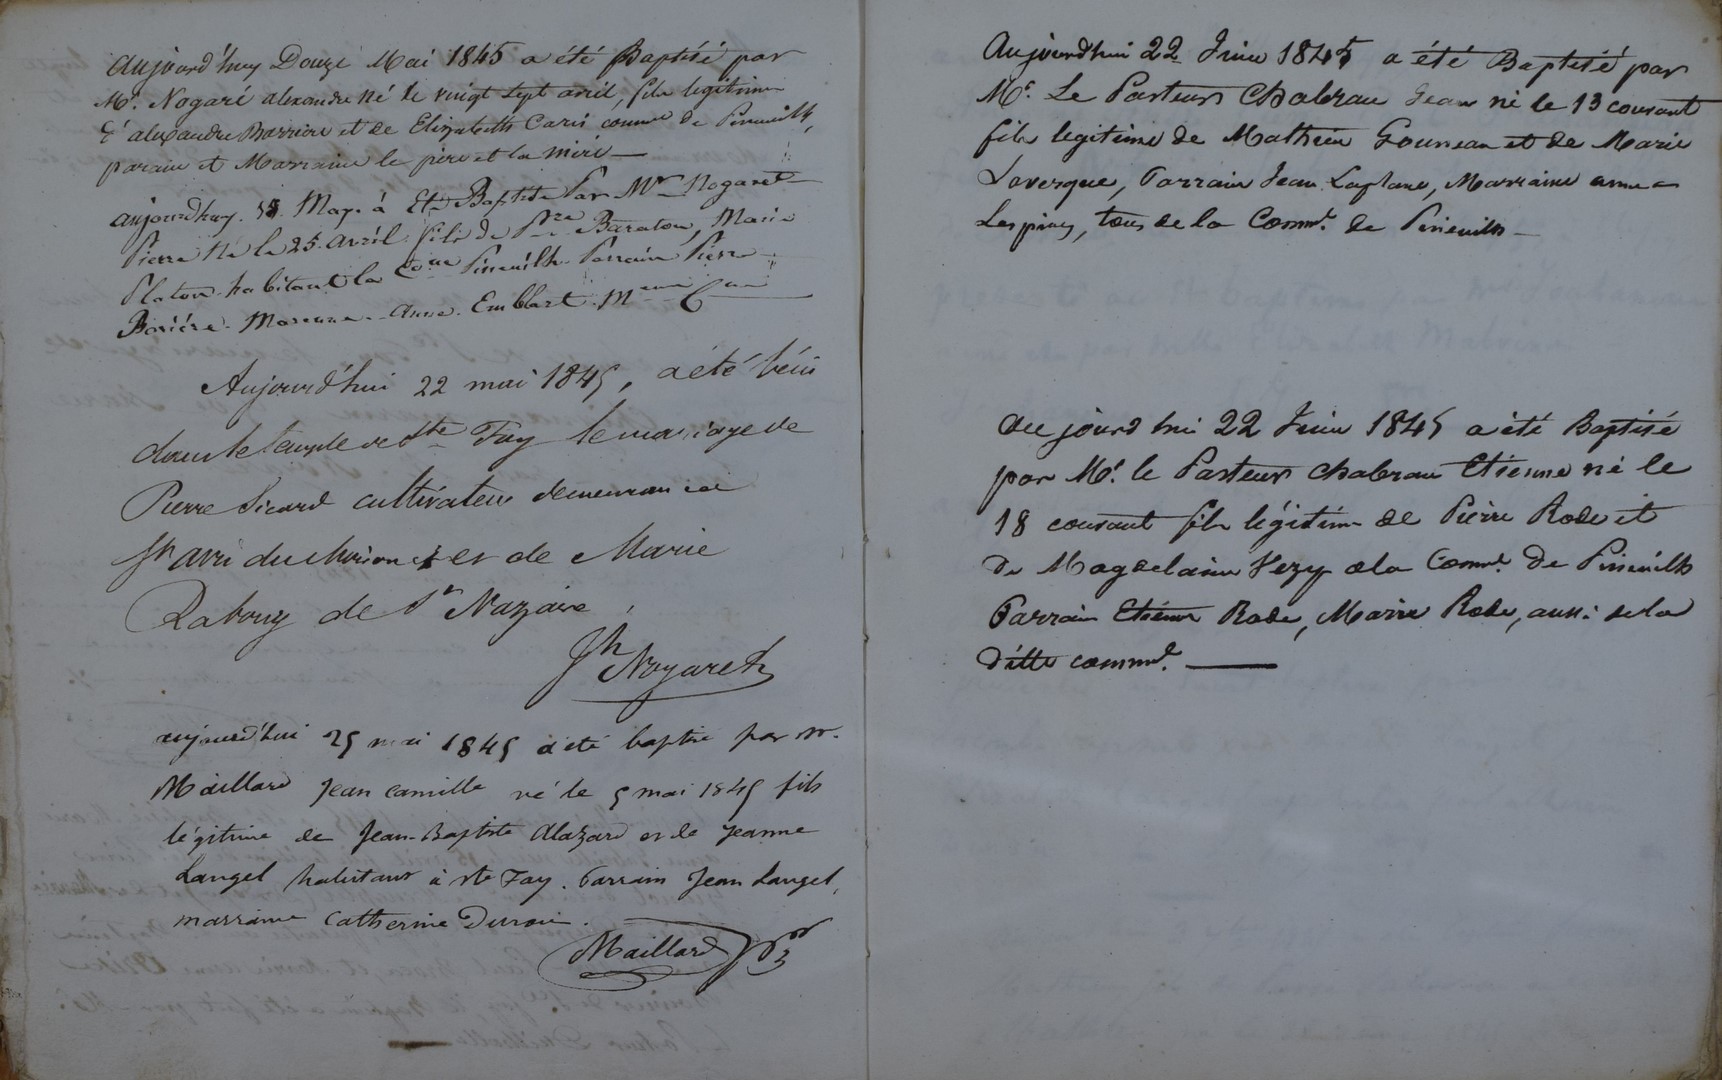 Aujourd'huy Douze Mai 1845 a été Baptisé par
Mr. Nogaré alexandre né le vingt sept avril, fils legitime
d'alexandre Barriere et de Elizabeth Caris comme de Pineuilh,
parain et Marraine le père et la mère
aujourdhuy. 18. May. à Eté Baptisé Par Mr Nogaret
Pierre Né le 25. Avril. fils de Pre Baraton, Marie
Platon habitant la Coue Pineuilh. Parrain Pierre
Bariére. Marenne. Anne. Emblart. Meme Cne
Aujourd'hui 22 mai 1845, a été béni
dans le temple de Ste Foy le mariage de
Pierre Sicard cultivateur demeurant à
St avit du et de Marie
Rabouy de St Nazaire,
Jh Nogaret
aujourd'hui 25 mai 1845 a été baptisé par Mr.
Maillard Jean Camille né le 5 mai 1845 fils
légitime de Jean-Baptiste Alazard et de Jeanne
Langel habitant à Ste Foy. Parrain Jean Langel,
marraine Catherine
Maillard pr
Aujourdhui 22 Juin 1845 a été Baptisé par
Mr. Le Pasteur Chabrau Jean né le 13 courant
fils legitime de Mathieu Gouneau et de Marie
Lavergne, Parrain Jean Laplane, Marraine anne
Lespine, tous de la Comme. de Pineuilh
Au jourd hui 22 Juin 1845 a été Baptisé
par Mr. le Pasteur Chabrau Etienne né le
18 courant fils légitime de Pierre Rode et
De Magdelaine Vezy de la Comme. De Pineuilh
Parrain Etienne Rode, Marie Rode, aussi de la
ditte comme.